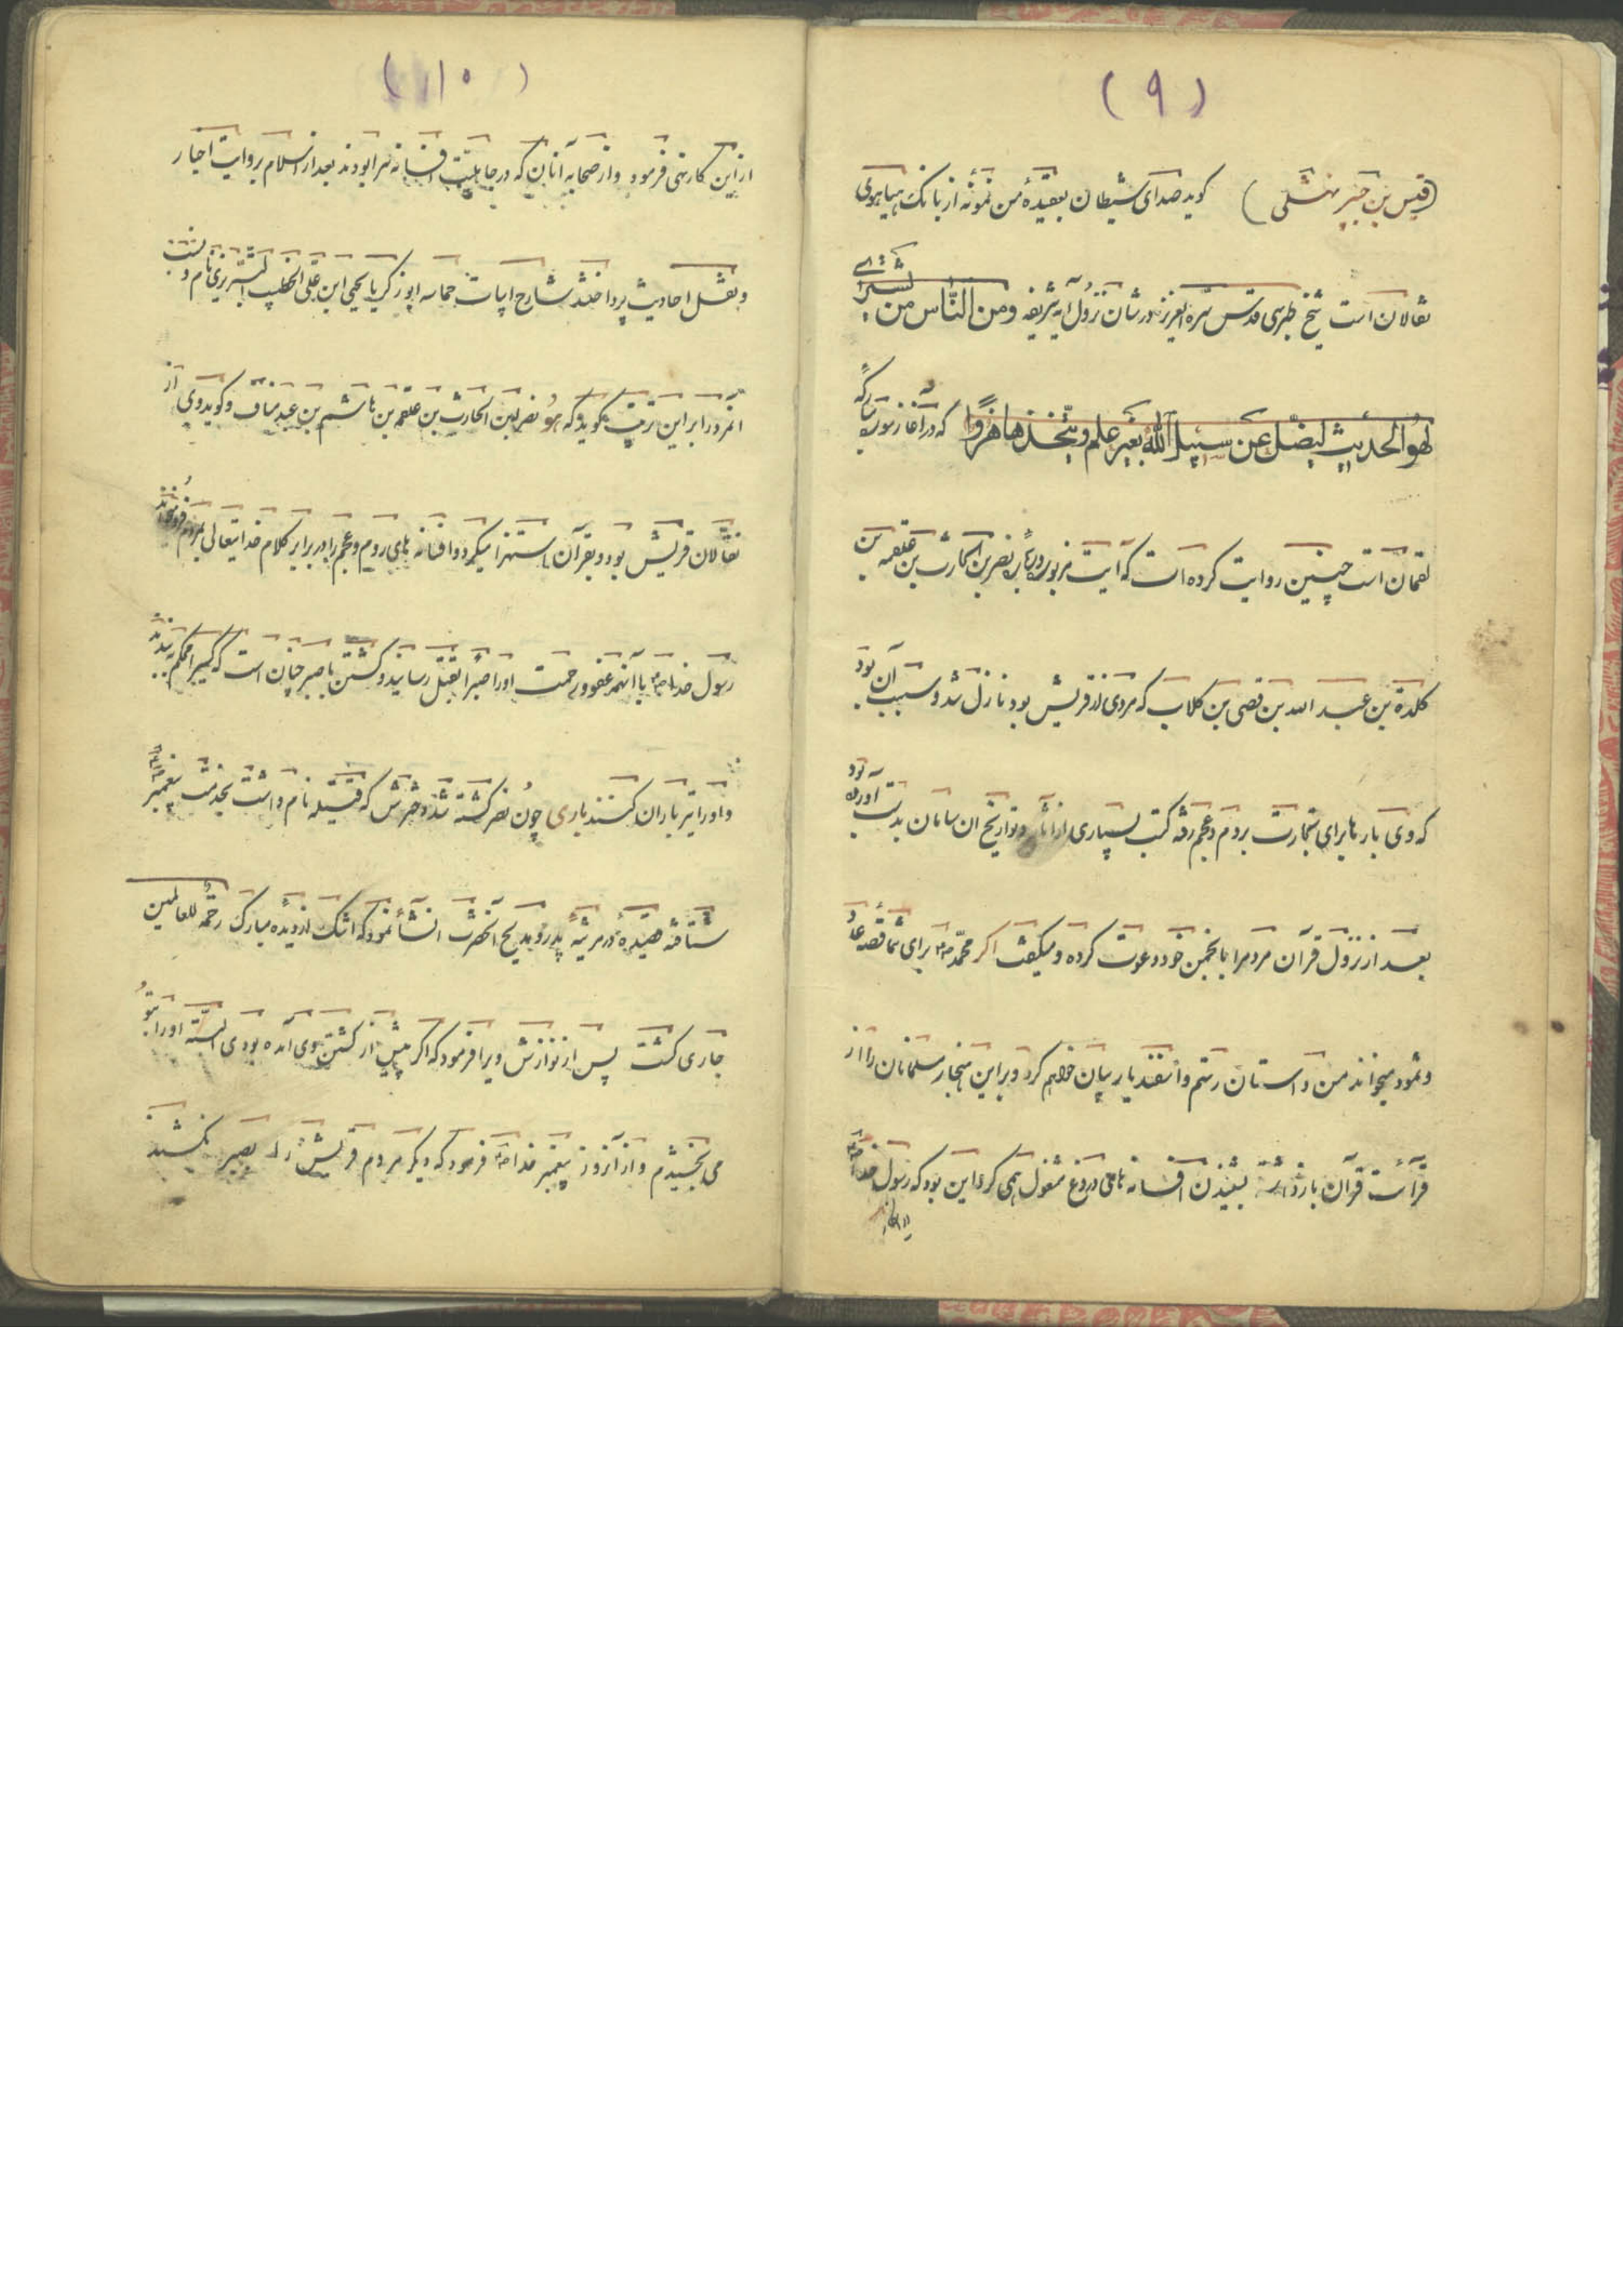 (۹)
(قیس بن جبیر نهشلی) کوید صدای شیطان بعقیدهٔ من نمونهٔ از بانک هیاهوی
نقالان است شیخ طبرسی قدس سره العزیز در شان نزول آیه شریفه ومن الناس من یشتری
لهو الحدیث لیضل عن سبیل الله بغیر علم ویتخذها هزوا که در آغاز سوره مبارکه
لقمان است چنین روایت کرده است که آیت مزبور در شان نضر بن الحارث بن علقمه بن
کلدة بن عبد الله بن قصی بن کلاب که مردی از قریش بود نازل شد و سبب آن بود
که وی بارها برای تجارت بروم و عجم رفته کتب بسیاری از آثار و تواریخ ان سامان بدست آورده بود
بعد از نزول قرآن مردمرا بانجمن خود دعوت کرده و میکفت اکر محمد ص برای شما قصهٔ عاد
و ثمود میخواند من داستان رستم و اسفندیار بیان خواهم کرد و براین هنجار مسلمانان را از
قرآئت قرآن بازداشته بشنیدن افسانه های دروغ مشغول همی کرد این بود که رسول خدا ص
(۱۰)
از این کار نهی فرمود و از صحابه آنان که در جاهلیت افسانه سرا بودند بعد از اسلام بروایت اخبار
و نقل احادیث پرداختند شارح ابیات حماسه ابو زکریا یحیی ابن علی الخطیب التبریزی نام و نسب
انمرد را بر این ترتیب بکوید که هو نضر بن الحارث بن علقمه بن هاشم بن عبد مناف و کوید وی از
نقالان قریش بود و بقرآن استهزا میکرد و افسانه های روم و عجم را در برابر کلام خدایتعالی بمردم فرو میخواند
رسول خدا ص با آنهمه عفو و رحمت او را صبراً بقتل رسانید و کشتن با صبر چنان است که کسیرا محکم به بندند
و او را تیر باران کنند باری چون نضر کشته شد دخترش که قتیله نام داشت بخدمت پیغمبر ص
شتافته قصیدهٔ در مرثیهٔ پدر و مدیح آنحضرت انشأ نمود که اشک از دیده مبارک رحمة للعالمین
جاری کشت پس از نوازش ویرا فرمود که اکر پیش از کشتن وی آمده بودی البته او را بتو
می بخشیدم و از آنروز پیغمبر خدا ص فرمود که دیکر مردم قریش را بصبر نکشند